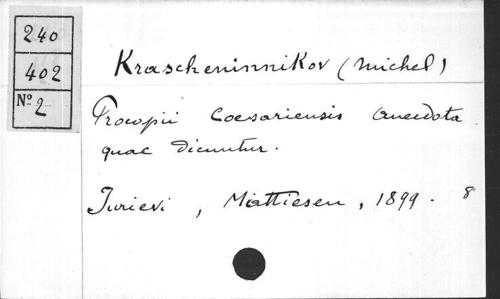 240
402
Nº 2
Krascheninnikov (Michel)
Procopii Coesariensis Anecdota
quae dicuntur.
Jurievi, Mattiesen, 1899. 8